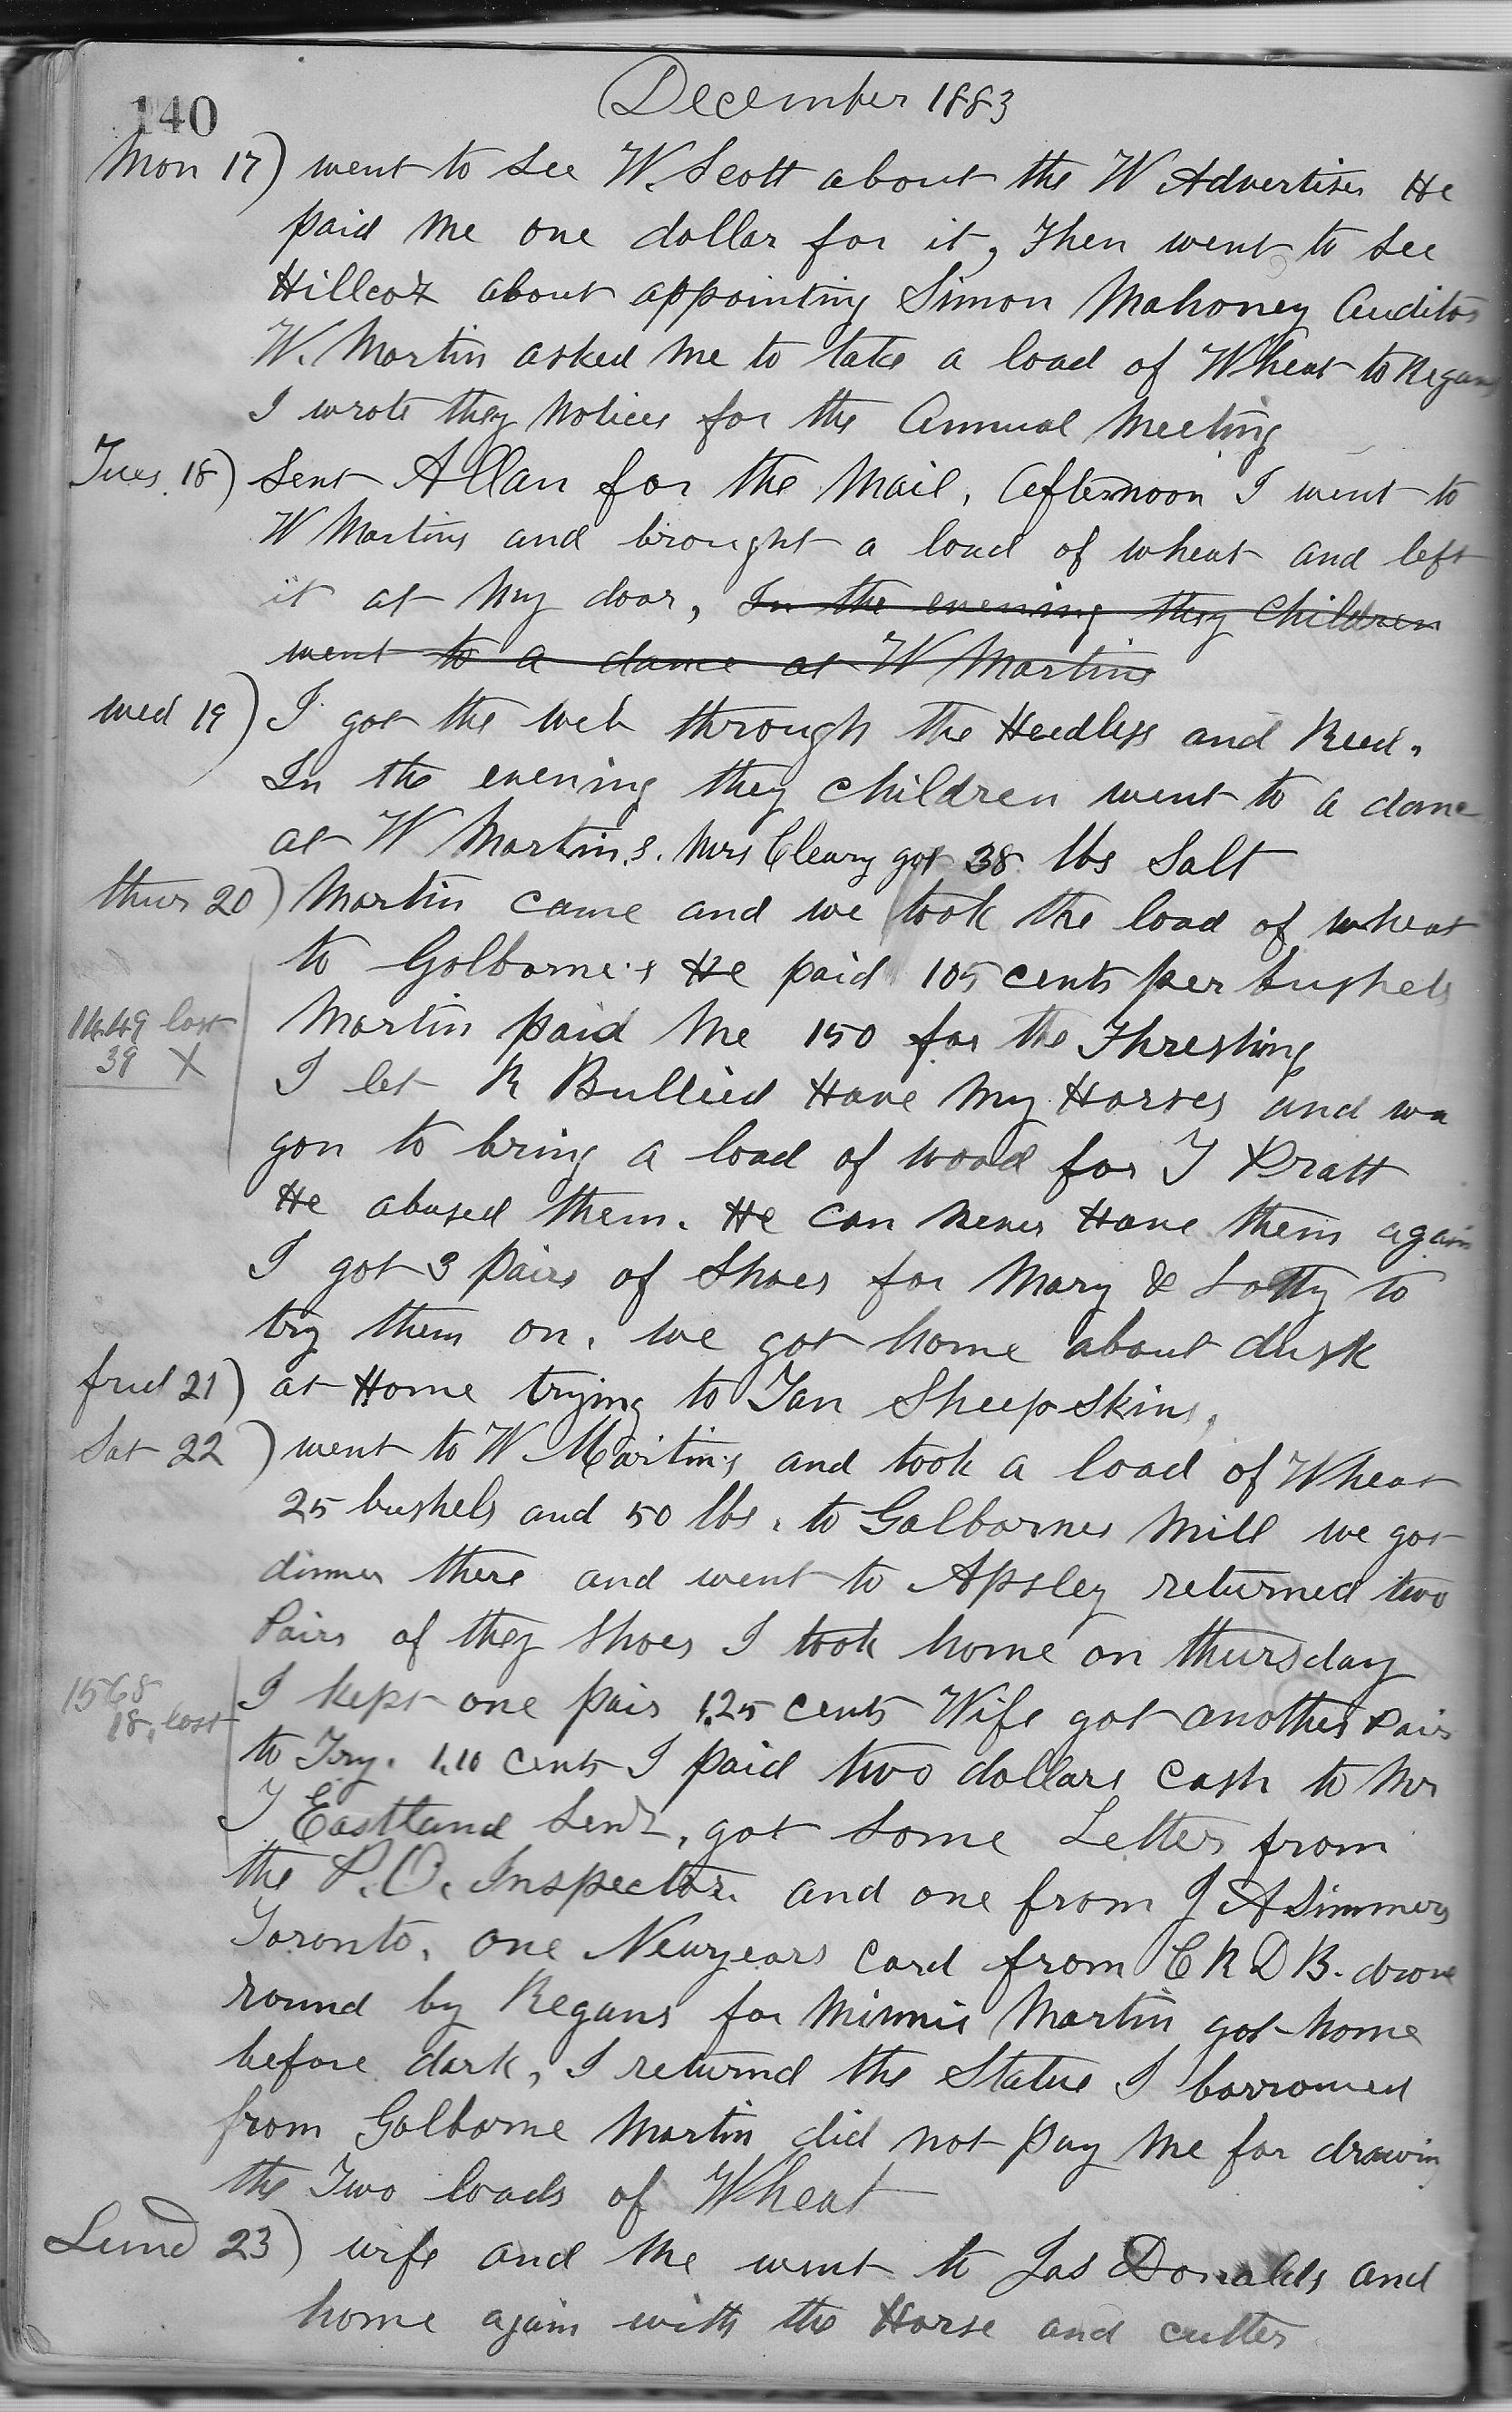 140
December 1883
Mon 17) went to See W. Scott about the W Advertiser He
paid me one dollar for it, Then went to see
Hillcox about appointing Simon Mahoney Auditor
W. Martin asked me to take a load of Wheat to Regans
I wrote they Notices for the Annual Meeting
Tues. 18) Sent Allan for the Mail, Afternoon I went to
W Martins and brought a load of wheat and left
it at My door, In the evening they Children
went to a dance at W Martins
wed 19) I got the web through the Heedless and Reed.
In the evening they children went to a dance
at W Martin,s. Mrs Cleary got 38 lbs Salt
thur 20) Martin came and we took the load of wheat
to Golborne's He paid 105 cents per bushels
14.49 lost
39 X
Martin paid Me 150 for the Threshing
I let R Bullied Have My Horses and wa
gon to bring a load of wood for T Pratt
He abused them. He can Never Have them again
I got 3 pairs of Shoes for Mary & Lotty to
try them on. we got home about dusk
frid 21) at Home trying to Tan Sheep Skins,
Sat 22) went to W Martin's and took a load of Wheat
25 bushels and 50 lbs. to Golbornes Mill we got
dinner there and went to Apsley returned two
Pairs of they Shoes I took home on thursday
1568
18, lost
I kept one pair 1.25 cents Wife got another Pair
to Try. 1.10 cents I paid two dollars cash to Mr
T Eastland Senr, got Some Letters from
the P.O. Inspector. and one from J A Simmers
Toronto, one Newyears Card from C R D B. drove
round by Regans for Minnie Martin got home
before dark, I returnd the Statue I borrowed
from Golborne Martin did not pay Me for drawin
the Two loads of Wheat
Sund 23) wife and Me went to Jas Donalds and
home again with the Horse and cutter